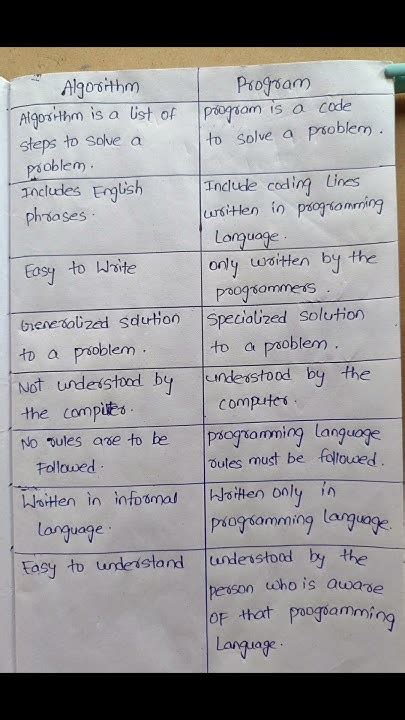 Algorithm
Program
Algorithm is a list of
steps to solve a
problem.
program is a code
to solve a problem.
Includes English
phrases.
Include coding lines
written in programming
Language.
Easy to Write
only written by the
programmers.
Generalized solution
to a problem.
Specialized solution
to a problem.
Not understood by
the computer.
understood by the
computer.
No rules are to be
Followed.
programming language
rules must be followed.
Written in informal
language.
Written only in
programming language.
Easy to understand
understood by the
person who is aware
OF that programming
Language.